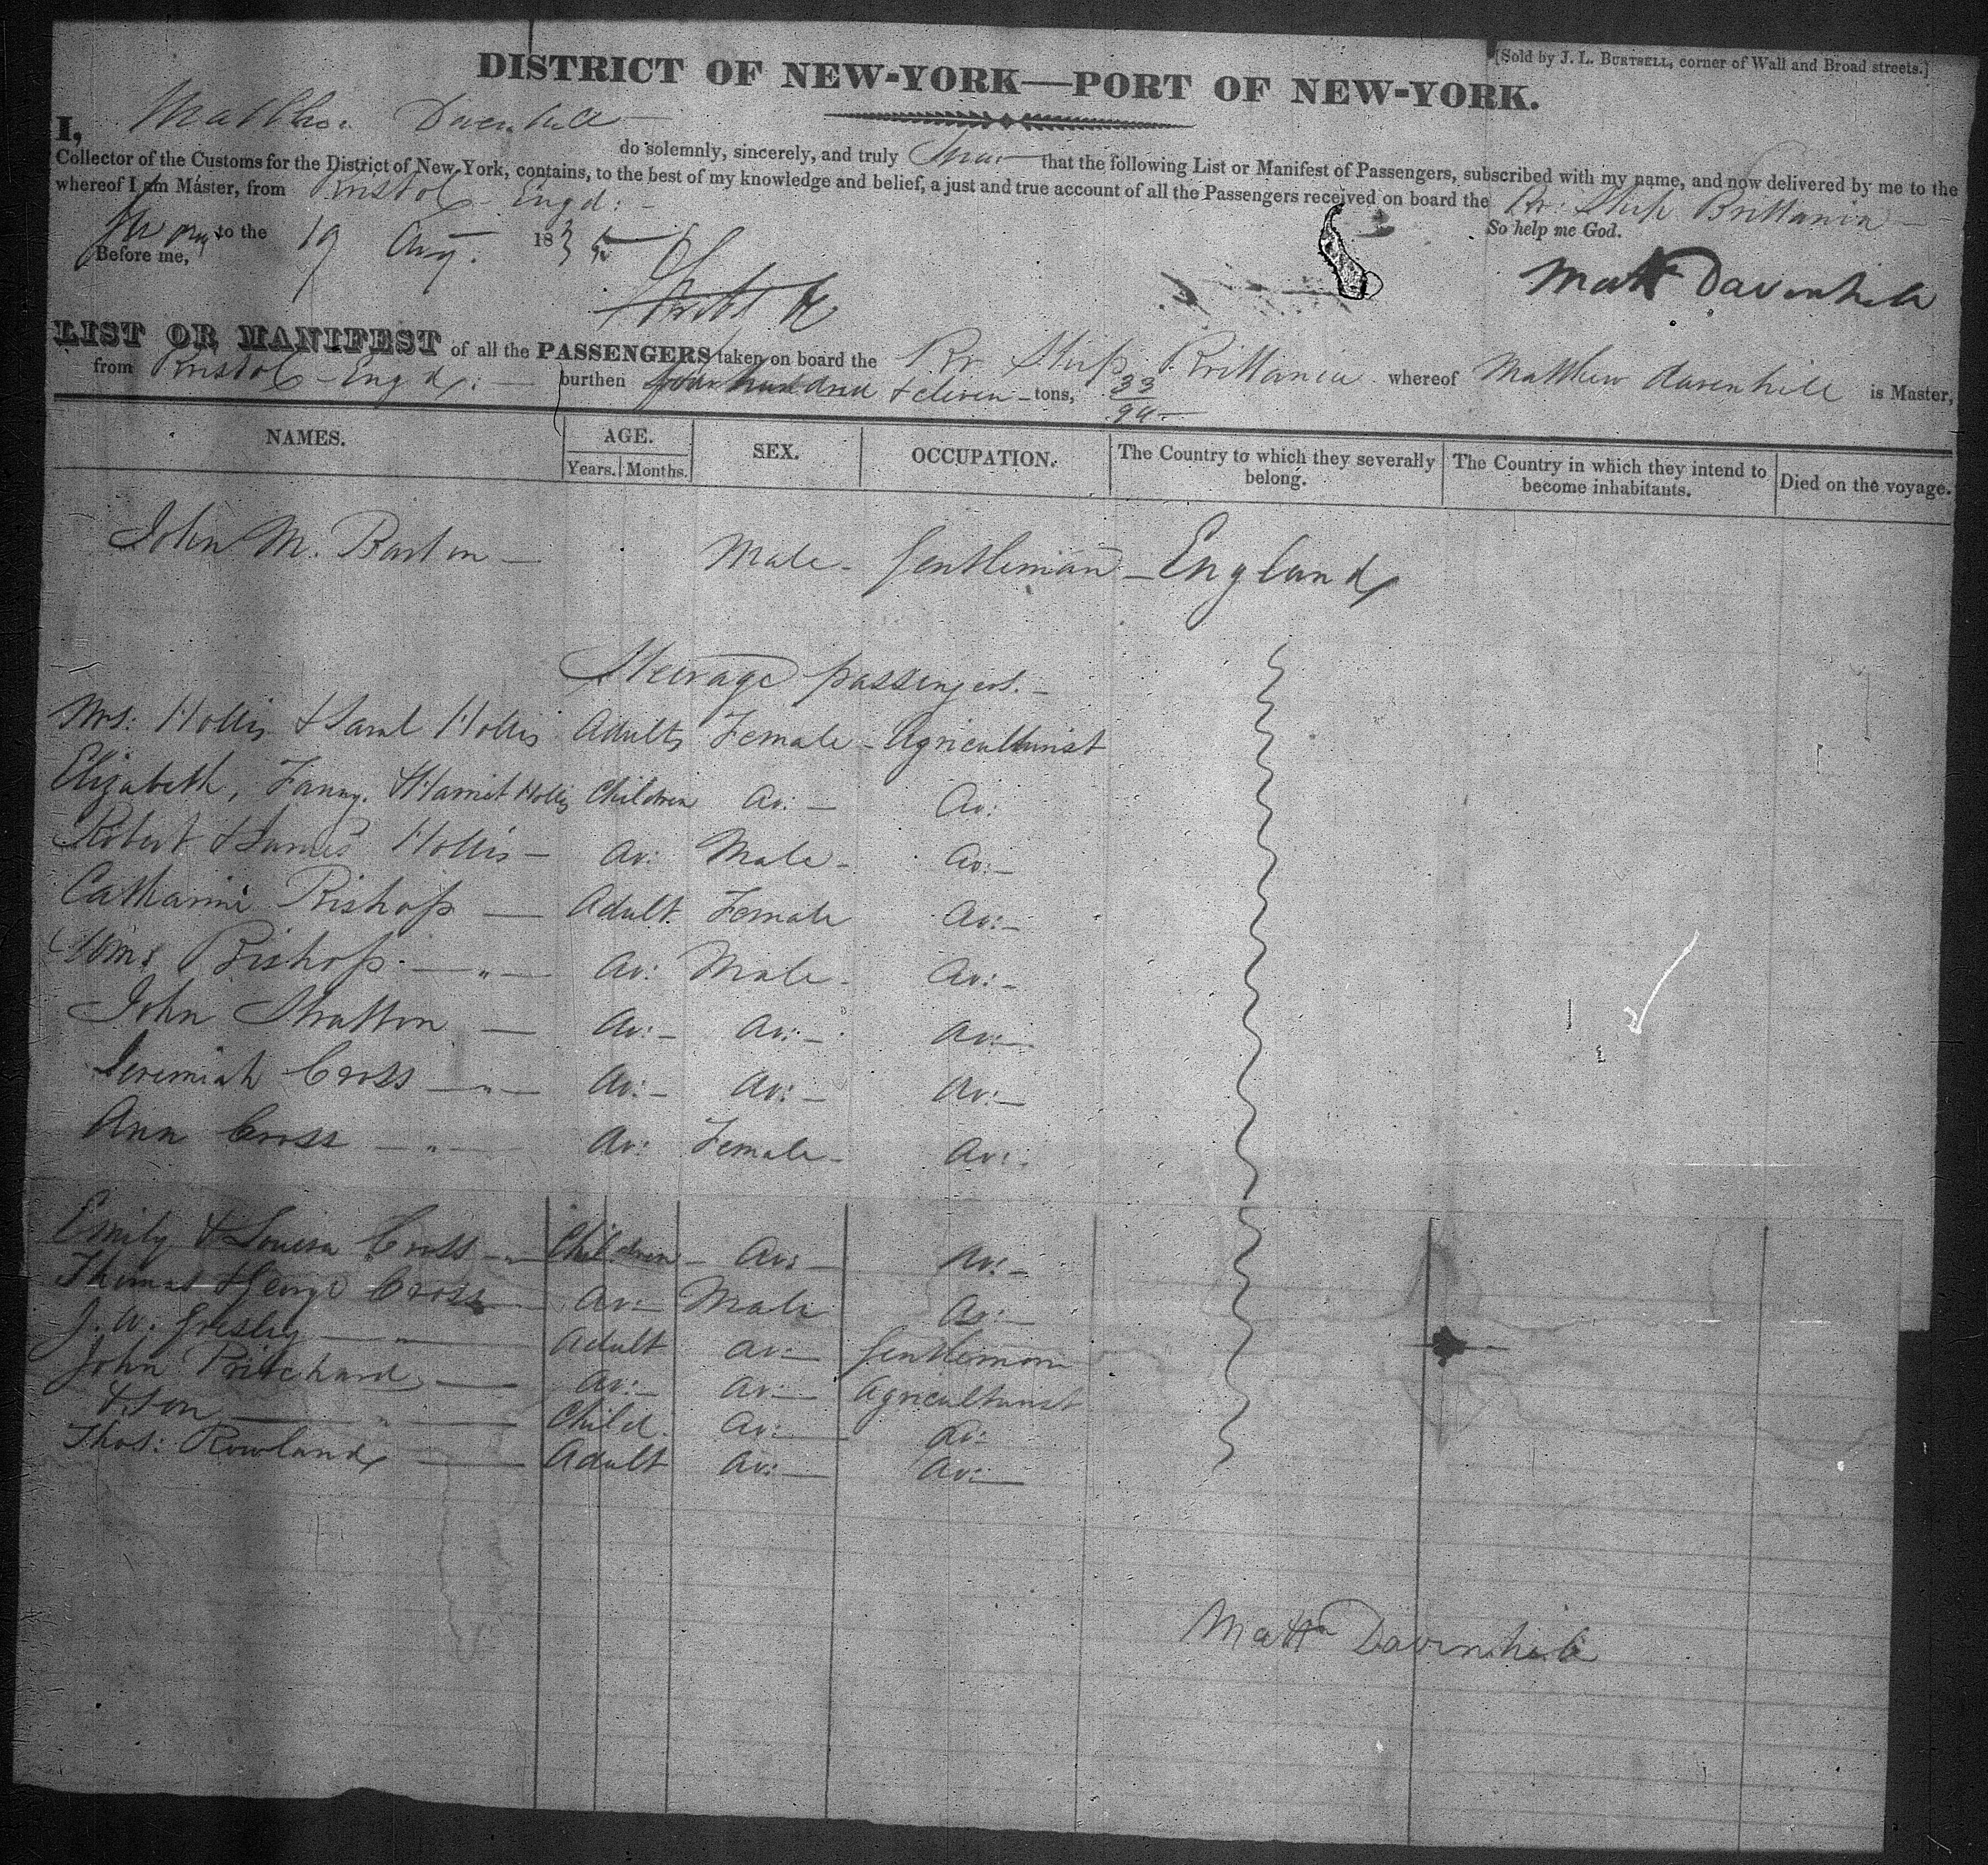 [Sold by J. L. BURTSELL, corner of Wall and Broad streets.]
DISTRICT OF NEW-YORK—PORT OF NEW-YORK.
I, Matthew Davenhill do solemnly, sincerely, and truly Swear that the following List or Manifest of Passengers, subscribed with my name, and now delivered by me to the
Collector of the Customs for the District of New-York, contains, to the best of my knowledge and belief, a just and true account of all the Passengers received on board the Br: Ship Brittania
whereof I am Master, from Bristol - Engd: - So help me God.
to the 19 Aug. 1835
Before me,
Matw Davenhill
LIST OR MANIFEST of all the PASSENGERS taken on board the Br. Ship Brittania whereof Matthew Davenhill is Master,
from Bristol - Engd: - burthen four hundred & eleven - tons, 33/94
NAMES. AGE. SEX. OCCUPATION. The Country to which they severally belong. The Country in which they intend to become inhabitants. Died on the voyage.
Years. Months.
John M. Barton - Male - Gentleman - England
Steerage passengers. -
Mrs: Hollis & Sarah Hollis Adults Female - Agriculturist
Elizabeth, Fanny, & Harriet Hollis Children Do: - Do:
Robert & James Hollis - Do: Male - Do: -
Catharine Bishop - Adult Female Do: -
Bishop - " - Do: Male - Do: -
John Stratton - Do: - Do: - Do: -
Jeremiah Cross - " - Do: - Do: - Do: -
Ann Cross - " - Do: Female - Do: -
Emily & Louisa Cross - " - Children - Do: - Do: -
Thomas & George Cross - Do: - Male Do: -
J. W. Gresley - " - Adult Do: - Gentleman
John Pritchard - Do: - Do: - Agriculturist
& Son - " - Child. Do: - Do:
Thos: Rowland - Adult Do: - Do: -
Matw Davenhill